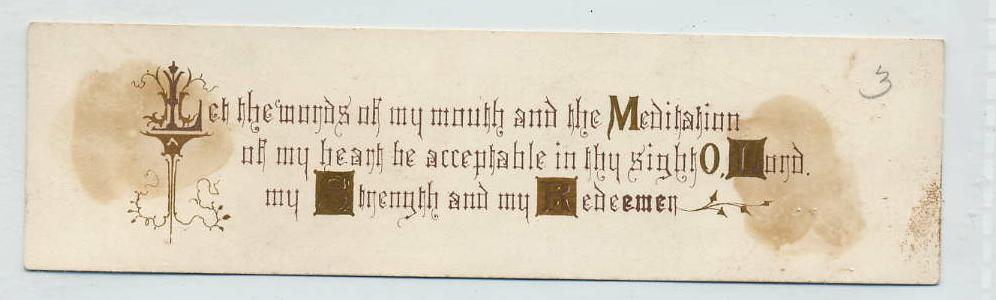 3
Let the words of my mouth and the Meditation
of my heart be acceptable in thy sight O, Lord.
my Strength and my Redeemer